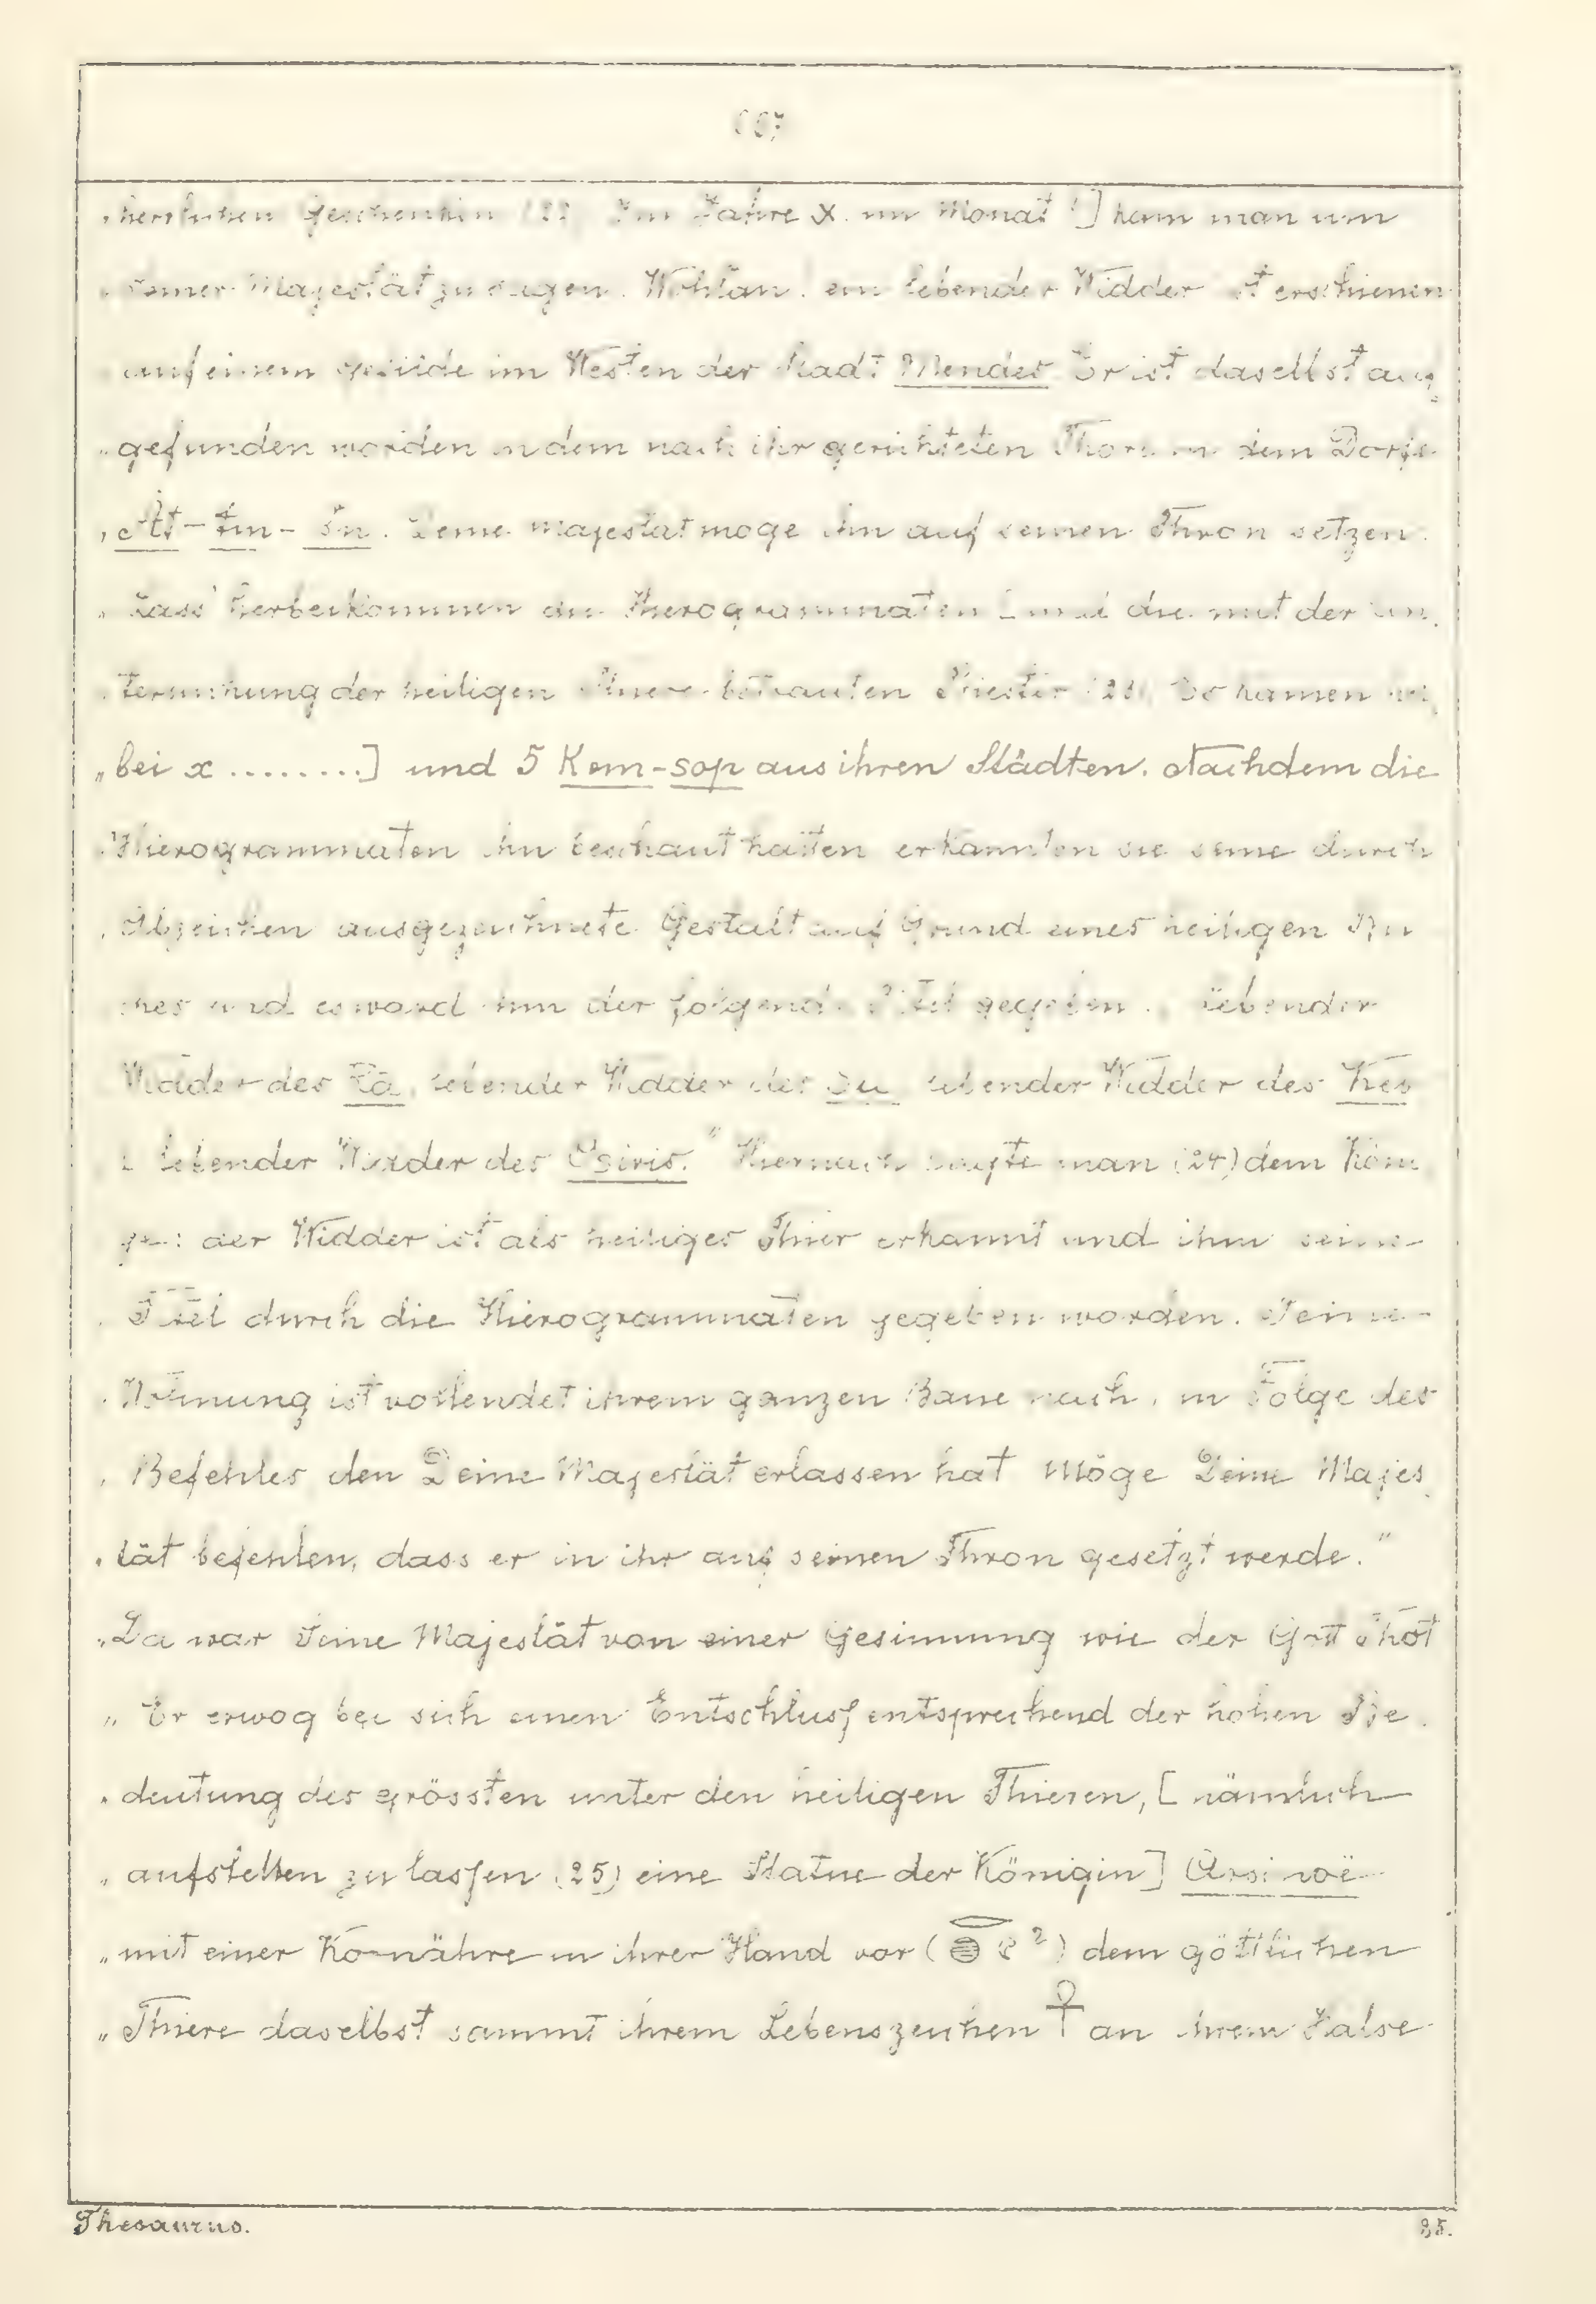 herrlichen Geschenken Im Jahre X. im Monat ] kam man um
seiner Majestät zu sagen. Wohlan! ein lebender Widder ist erschienen
auf einem im Westen der Stadt Mendes Er ist daselbst auf
„gefunden worden in dem nach ihr gerichteten in dem Dorfe
Deine Majestät möge ihn auf seinen Thron setzen.
„Lass' herbeikommen die Hierogrammaten [und die mit der Un,
tersuchung der heiligen Thiere betrauten Priester (23) Es kamen
„bei x ........] und 5 Kem-sop aus ihren Städten. Nachdem die
„Hierogrammaten ihn beschaut hatten erkannten sie seine durch
„Abzeichen ausgezeichnete Gestalt auf Grund eines heiligen Bu
ches und es ward ihm der folgende Titel gegeben. „Lebender
Widder des Rā, lebender Widder des Su lebender Widder des Keb
lebender Widder des Osiris." Hiernach sagte man (24) dem Köni
ge: der Widder ist als heiliges Thier erkannt und ihm seine
Titel durch die Hierogrammaten gegeben worden. Seine
„Wohnung ist vollendet ihrem ganzen Baue nach, in Folge des
„Befehles den Deine Majestät erlassen hat Möge Deine Majes
„tät befehlen, dass er in ihr auf seinen Thron gesetzt werde."
„Da war Seine Majestät von einer Gesinnung wie der Gott Thot
„Er erwog bei sich einen Entschluss entsprechend der hohen Be
„deutung des grössten unter den heiligen Thieren, [nämlich
„aufstellen zu lassen (25) eine Statue der Königin] Arsinoë
„mit einer Kornähre in ihrer Hand vor ( ?) dem göttlichen
„Thiere daselbst sammt ihrem Lebenszeichen ☥ an ihrem Halse
Thesaurus. 85.